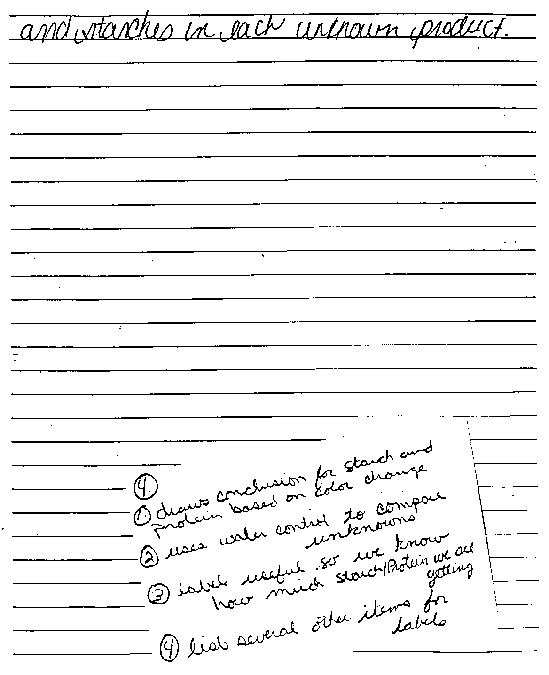 and starches in each unknown product.
④
① draws conclusion for starch and
protein based on color change
② uses water control to compare
unknowns
③ labels useful so we know
how much starch/Protein we are
getting
④ list several other items for
labels